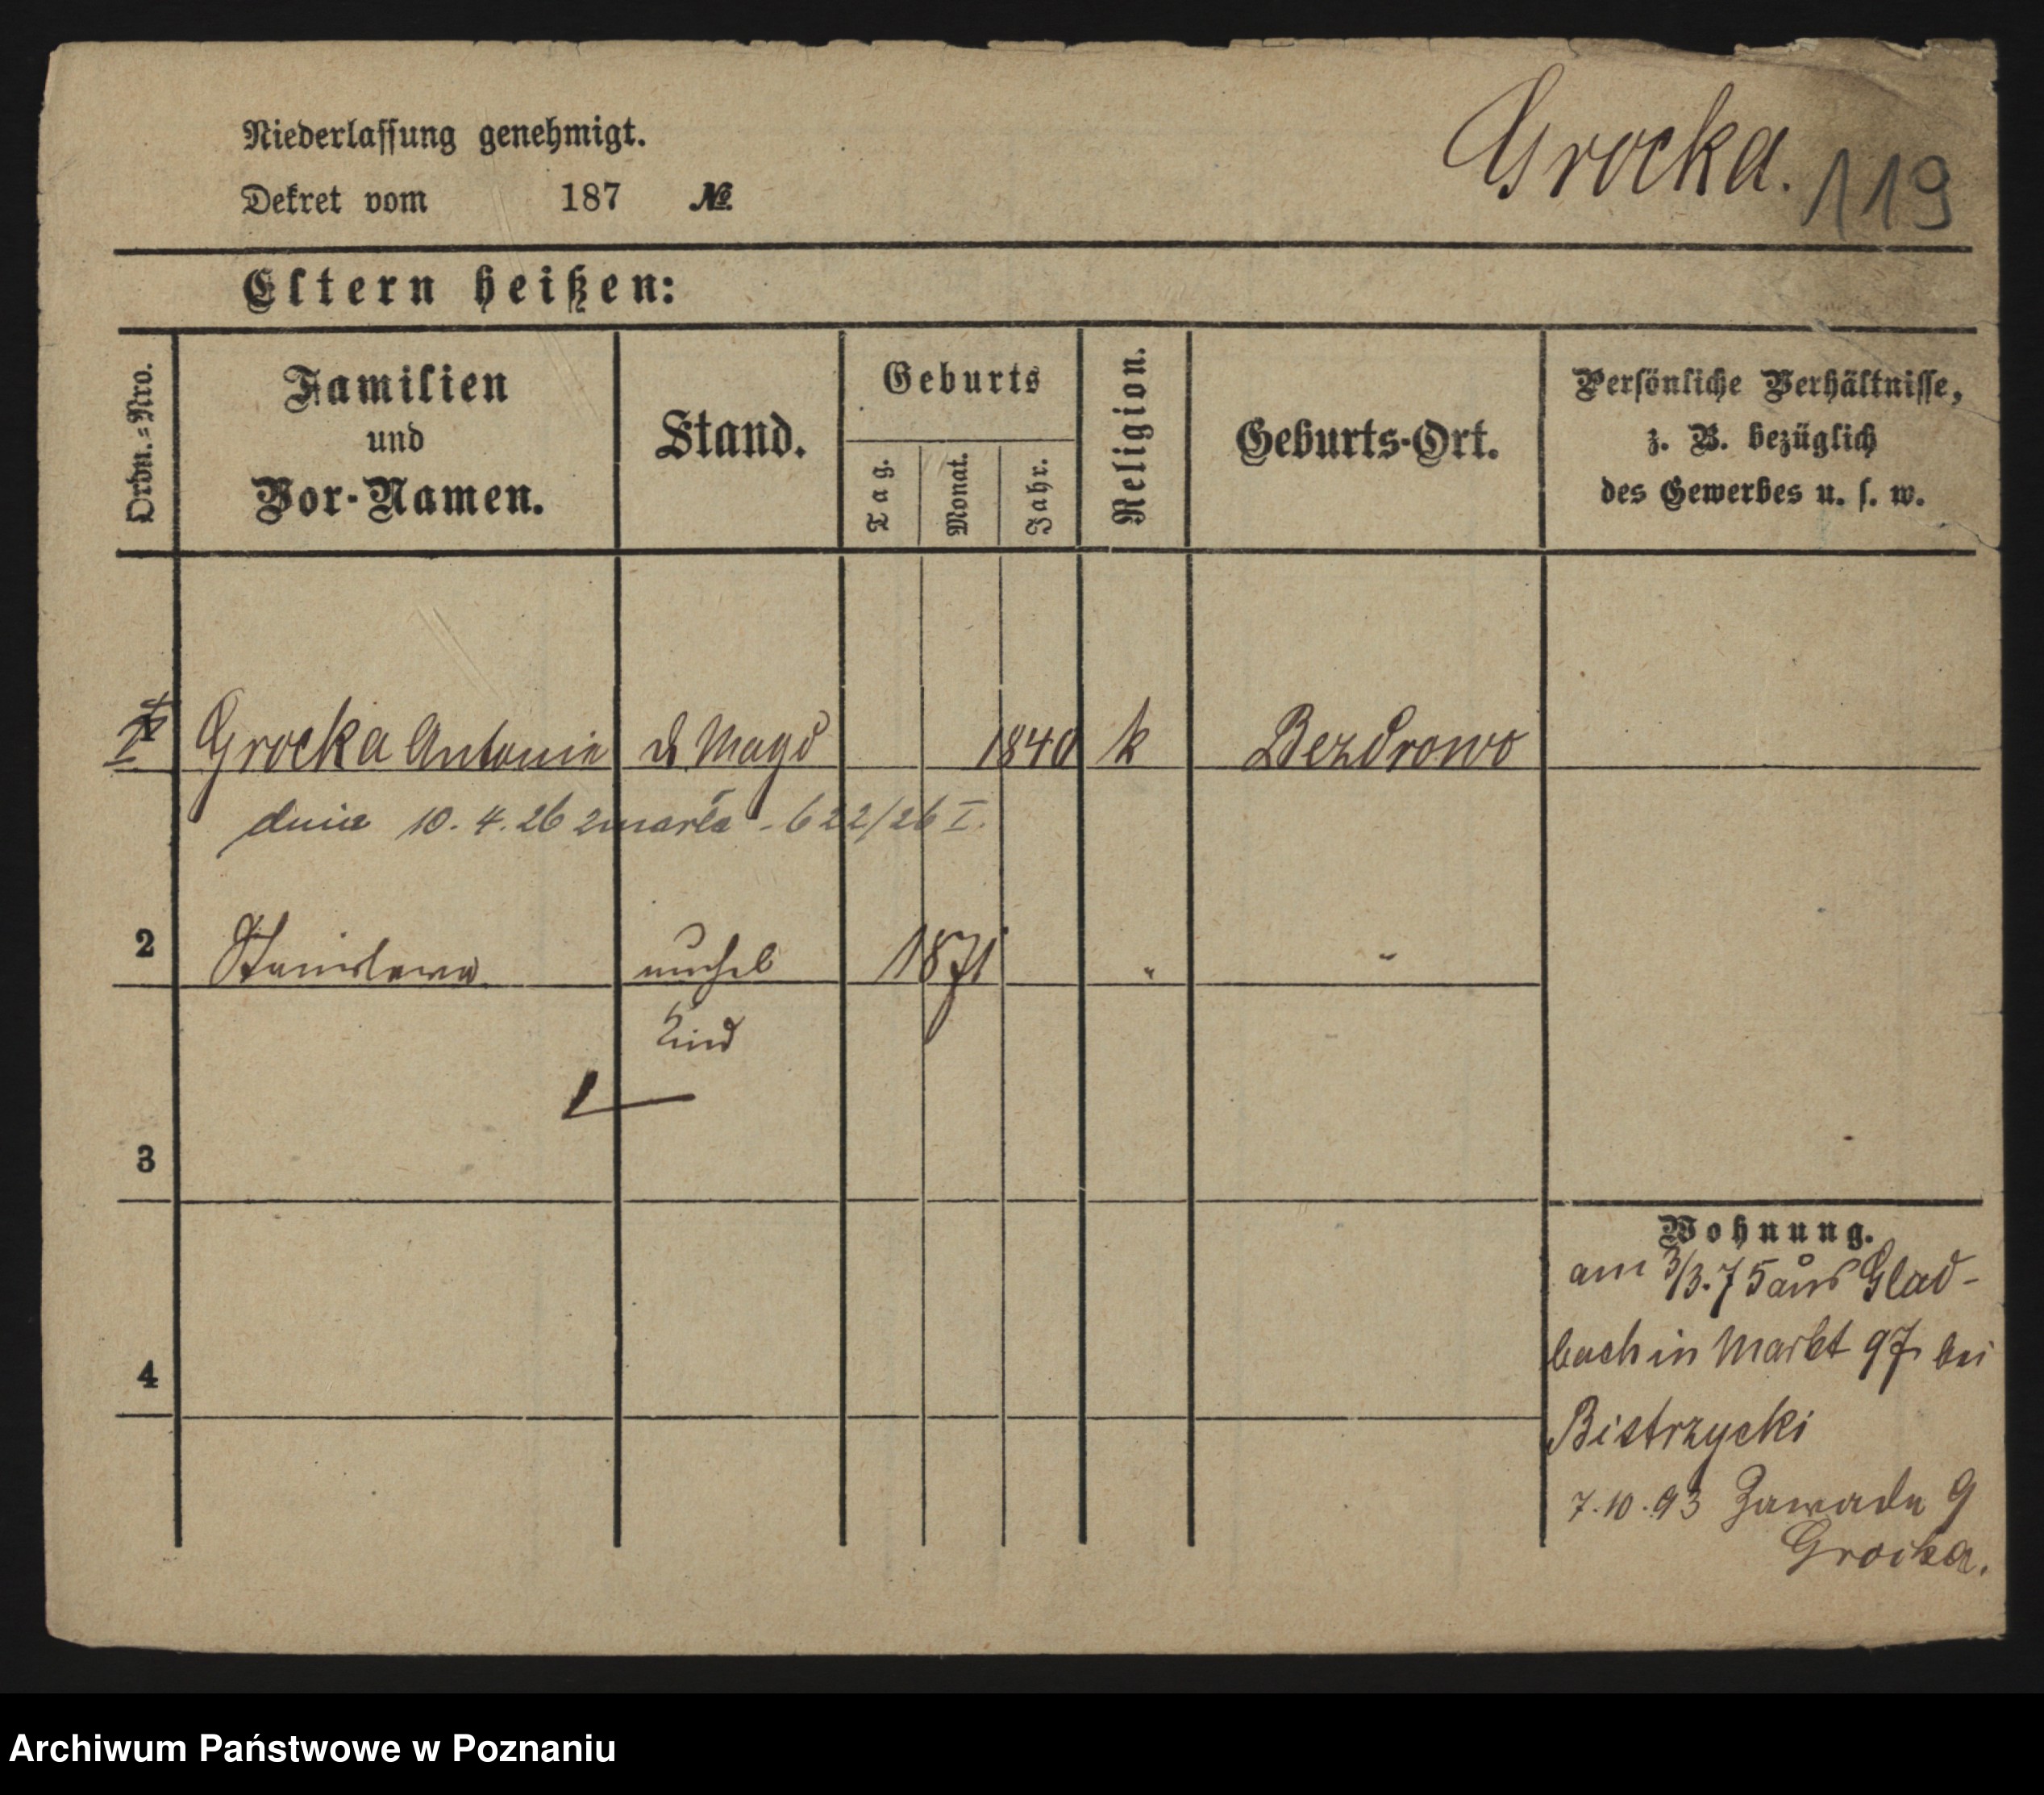 Grocka. 119
Niederlassung genehmigt.
Dekret vom 187 №
Eltern heißen:
Ordn.=Nro.
Familien
und
Vor-Namen.
Stand.
Geburts
Tag.
Monat.
Jahr.
Religion.
Geburts-Ort.
Persönliche Verhältnisse,
z. B. bezüglich
des Gewerbes u. s. w.
Grocka Antonie d Magd 1840 k Bezdrowo
dnia 10. 4. 26 zmarła - 622/26 I.
2 Stanislawa unehel 1871 " "
Kind
3
4
Wohnung.
am 3/3. 75 aus Glad-
bach in Markt 97 bei
Bistrzycki
7. 10. 93 Zawade 9
Grocka.
Archiwum Państwowe w Poznaniu